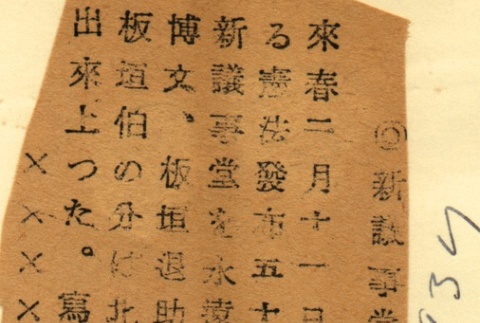 ◎新議事堂
來春二月十一日
る憲法發布五十
新議事堂を永遠
博文、板垣退助
板垣伯の分は北
出來上つた。寫
××××